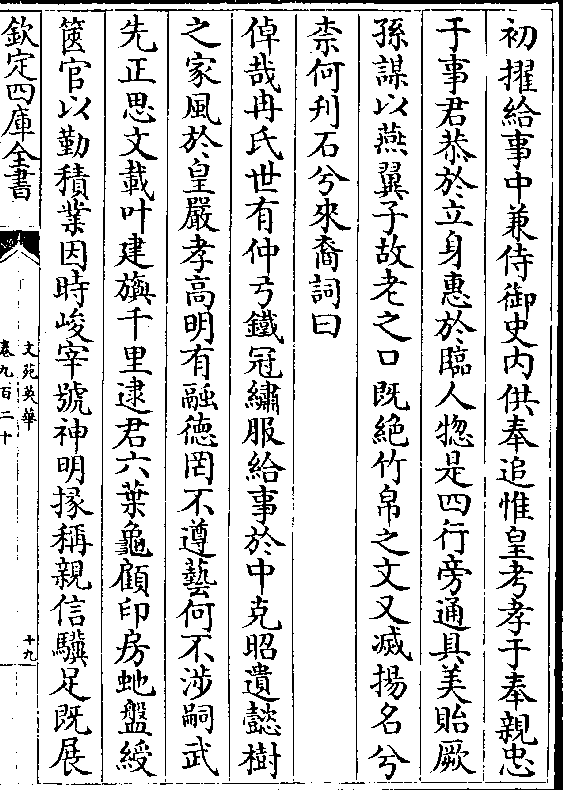 初擢給事中兼侍御史内供奉追惟皇考孝于奉親忠
于事君恭於立身惠於臨人惣是四行旁通具美貽厥
孫謀以燕翼子故老之口既絶竹帛之文又滅揚名兮
柰何刋石兮來裔詞曰
倬哉冉氏世有仲弓鐵冠繡服給事於中克昭遺懿樹
之家風於皇嚴孝高明有融德罔不遵藝何不涉嗣武
先正思文載叶建旟千里逮君六葉龜顧印房虵盤綬
篋官以勤積業因時峻宰號神明掾稱親信驥足既展
欽定四庫全書
文苑英華
卷九百二十
十九